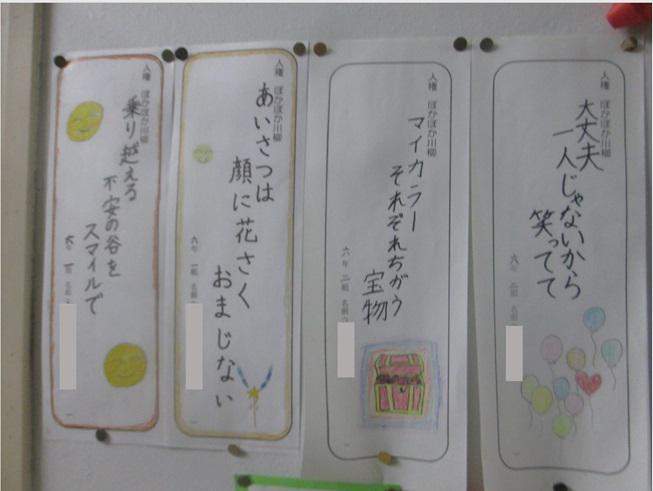 人権 ぽかぽか川柳
大丈夫
一人じゃないから
笑ってて
六年 二組 名前
人権 ぽかぽか川柳
マイカラー
それぞれちがう
宝物
六年 二組 名前
人権 ぽかぽか川柳
あいさつは
顔に花さく
おまじない
六年 一組 名前
人権 ぽかぽか川柳
乗り越える
不安の谷を
スマイルで
六年 一組 名前